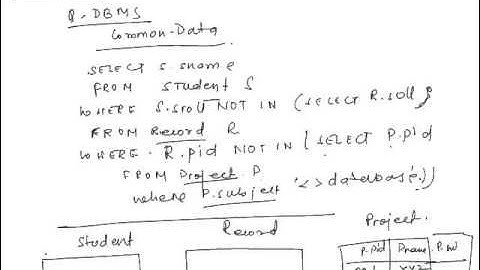 Q. DBMS
Common-Data
SELECT S.sname
FROM Student S
WHERE S.sroll NOT IN (SELECT R.soll
FROM Record R
WHERE. R.pid NOT IN (SELECT P.pid
FROM Project P
where P.subject '<>database'.))
Student Record Project.
P.pid Pname
XYZ